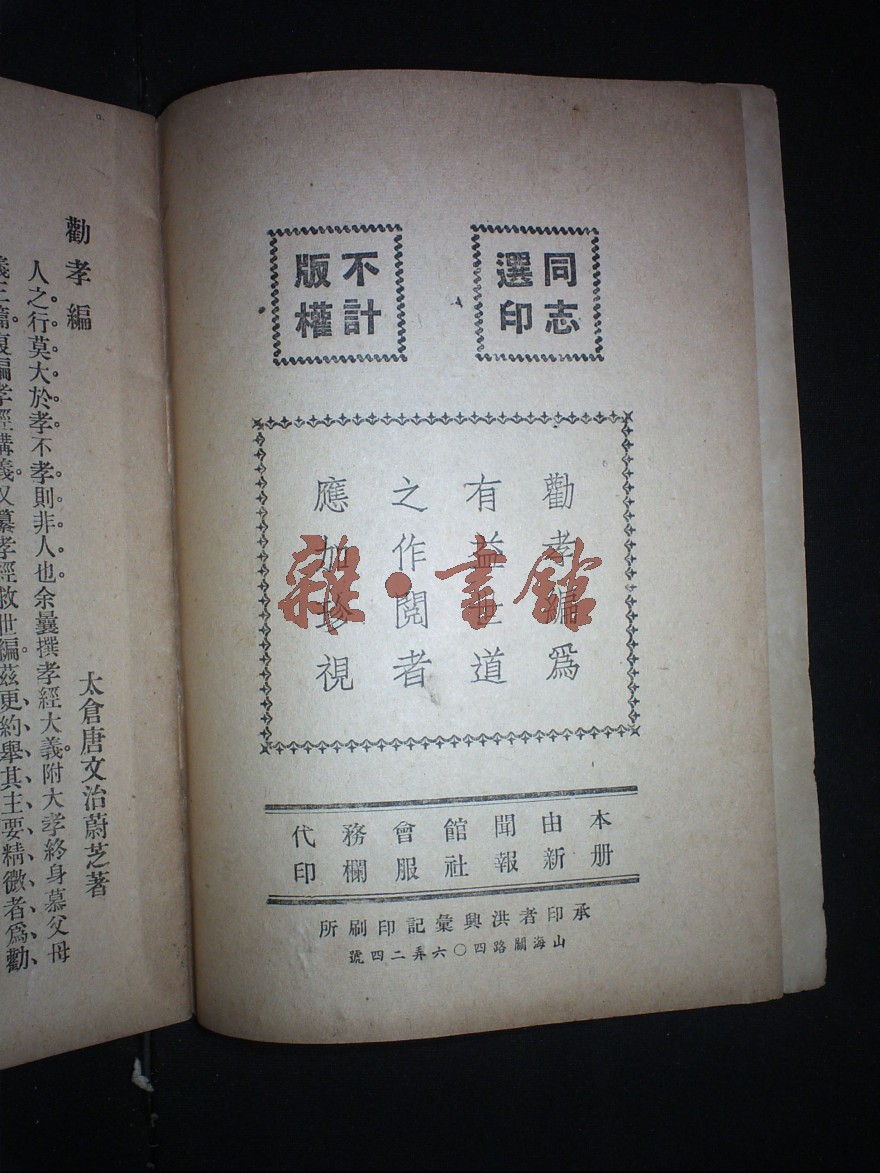 同志
選印
不計
版權
勸孝編爲
有益世道
之作閱者
應加珍視
雜·書館
本册由新聞報館社會服務欄代印
承印者洪興彙記印刷所
山海關路四〇六弄二四號
勸孝編
太倉唐文治蔚芝著
人之行莫大於孝不孝則非人也余曩撰孝經大義附大孝終身慕父母
義三篇復編孝經講義又纂孝經救世編茲更約舉其主要精微者爲勸